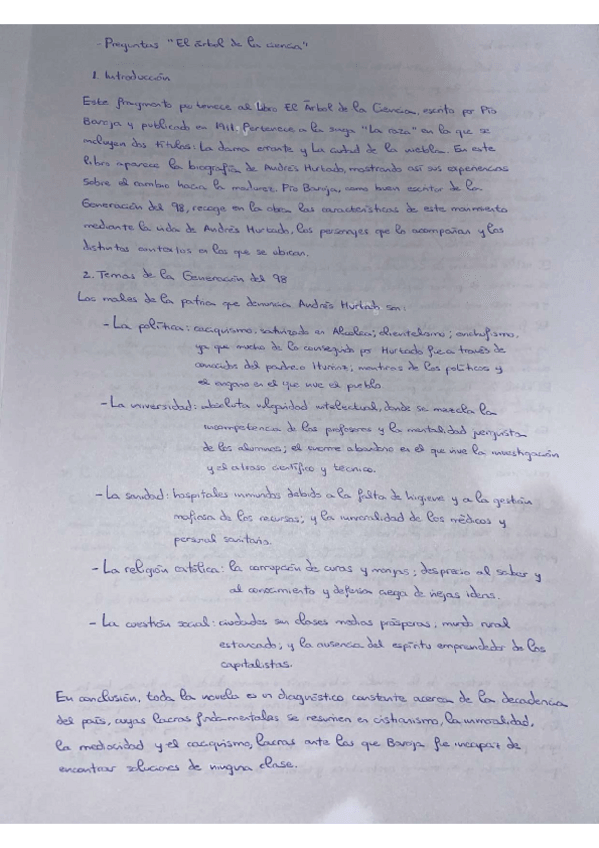 - Preguntas "El árbol de la ciencia"
1. Introducción
Este fragmento pertenece al libro El Árbol de la Ciencia, escrito por Pío
Baroja y publicado en 1911. Pertenece a la saga "La raza" en la que se
incluyen dos títulos: La dama errante y La ciudad de la niebla. En este
libro aparece la biografía de Andrés Hurtado, mostrando así sus experiencias
sobre el cambio hacia la madurez. Pío Baroja, como buen escritor de la
Generación del 98, recoge en la obra las características de este movimiento
mediante la vida de Andrés Hurtado, los personajes que lo acompañan y los
distintos contextos en los que se ubican.
2. Temas de la Generación del 98
Los males de la patria que denuncia Andrés Hurtado son:
- La política: caciquismo, satirizado en Alcolea; clientelismo; enchufismo,
ya que mucho de lo conseguido por Hurtado fue a través de
conocidos del padre o Iturrioz; mentiras de los políticos y
el engaño en el que vive el pueblo
- La universidad: absoluta vulgaridad intelectual, donde se mezcla la
incompetencia de los profesores y la mentalidad juerguista
de los alumnos; el enorme abandono en el que vive la investigación
y el atraso científico y técnico.
- La sanidad: hospitales inmundos debido a la falta de higiene y a la gestión
mafiosa de los recursos; y la inmoralidad de los médicos y
personal sanitario.
- La religión católica: la corrupción de curas y monjas; desprecio al saber y
al conocimiento y defensa ciega de viejas ideas.
- La cuestión social: ciudades sin clases medias prósperas; mundo rural
estancado; y la ausencia del espíritu emprendedor de los
capitalistas.
En conclusión, toda la novela es un diagnóstico constante acerca de la decadencia
del país, cuyas lacras fundamentales se resumen en cristianismo, la inmoralidad,
la mediocridad y el caciquismo, lacras ante las que Baroja fue incapaz de
encontrar soluciones de ninguna clase.